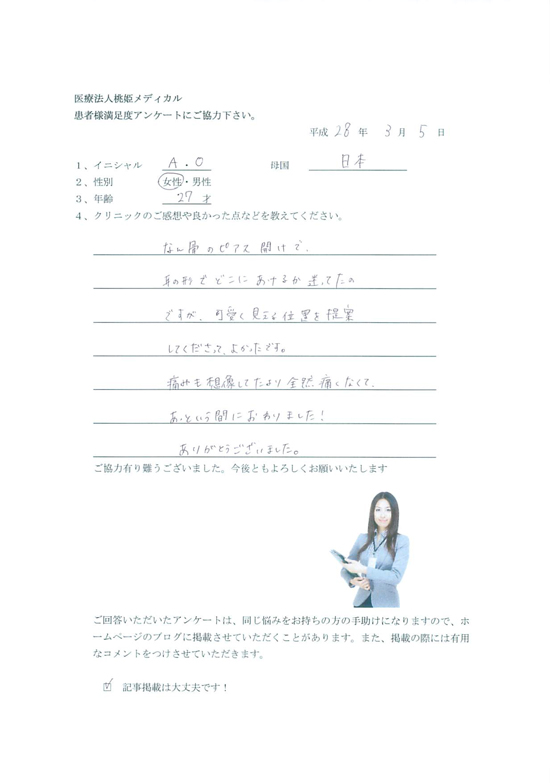 医療法人桃姫メディカル
患者様満足度アンケートにご協力下さい。
平成 28 年 3 月 5 日
1、イニシャル A.O 母国 日本
2、性別 女性・男性
3、年齢 27才
4、クリニックのご感想や良かった点などを教えてください。
なん骨のピアス開けで、
耳の形でどこにあけるか迷ってたの
ですが、可愛く見える位置を提案
してくださって、よかったです。
痛みも想像してたより全然痛くなくて、
あっという間におわりました!
ありがとうございました。
ご協力有り難うございました。今後ともよろしくお願いいたします
ご回答いただいたアンケートは、同じ悩みをお持ちの方の手助けになりますので、ホ
ームページのブログに掲載させていただくことがあります。また、掲載の際には有用
なコメントをつけさせていただきます。
☑ 記事掲載は大丈夫です!